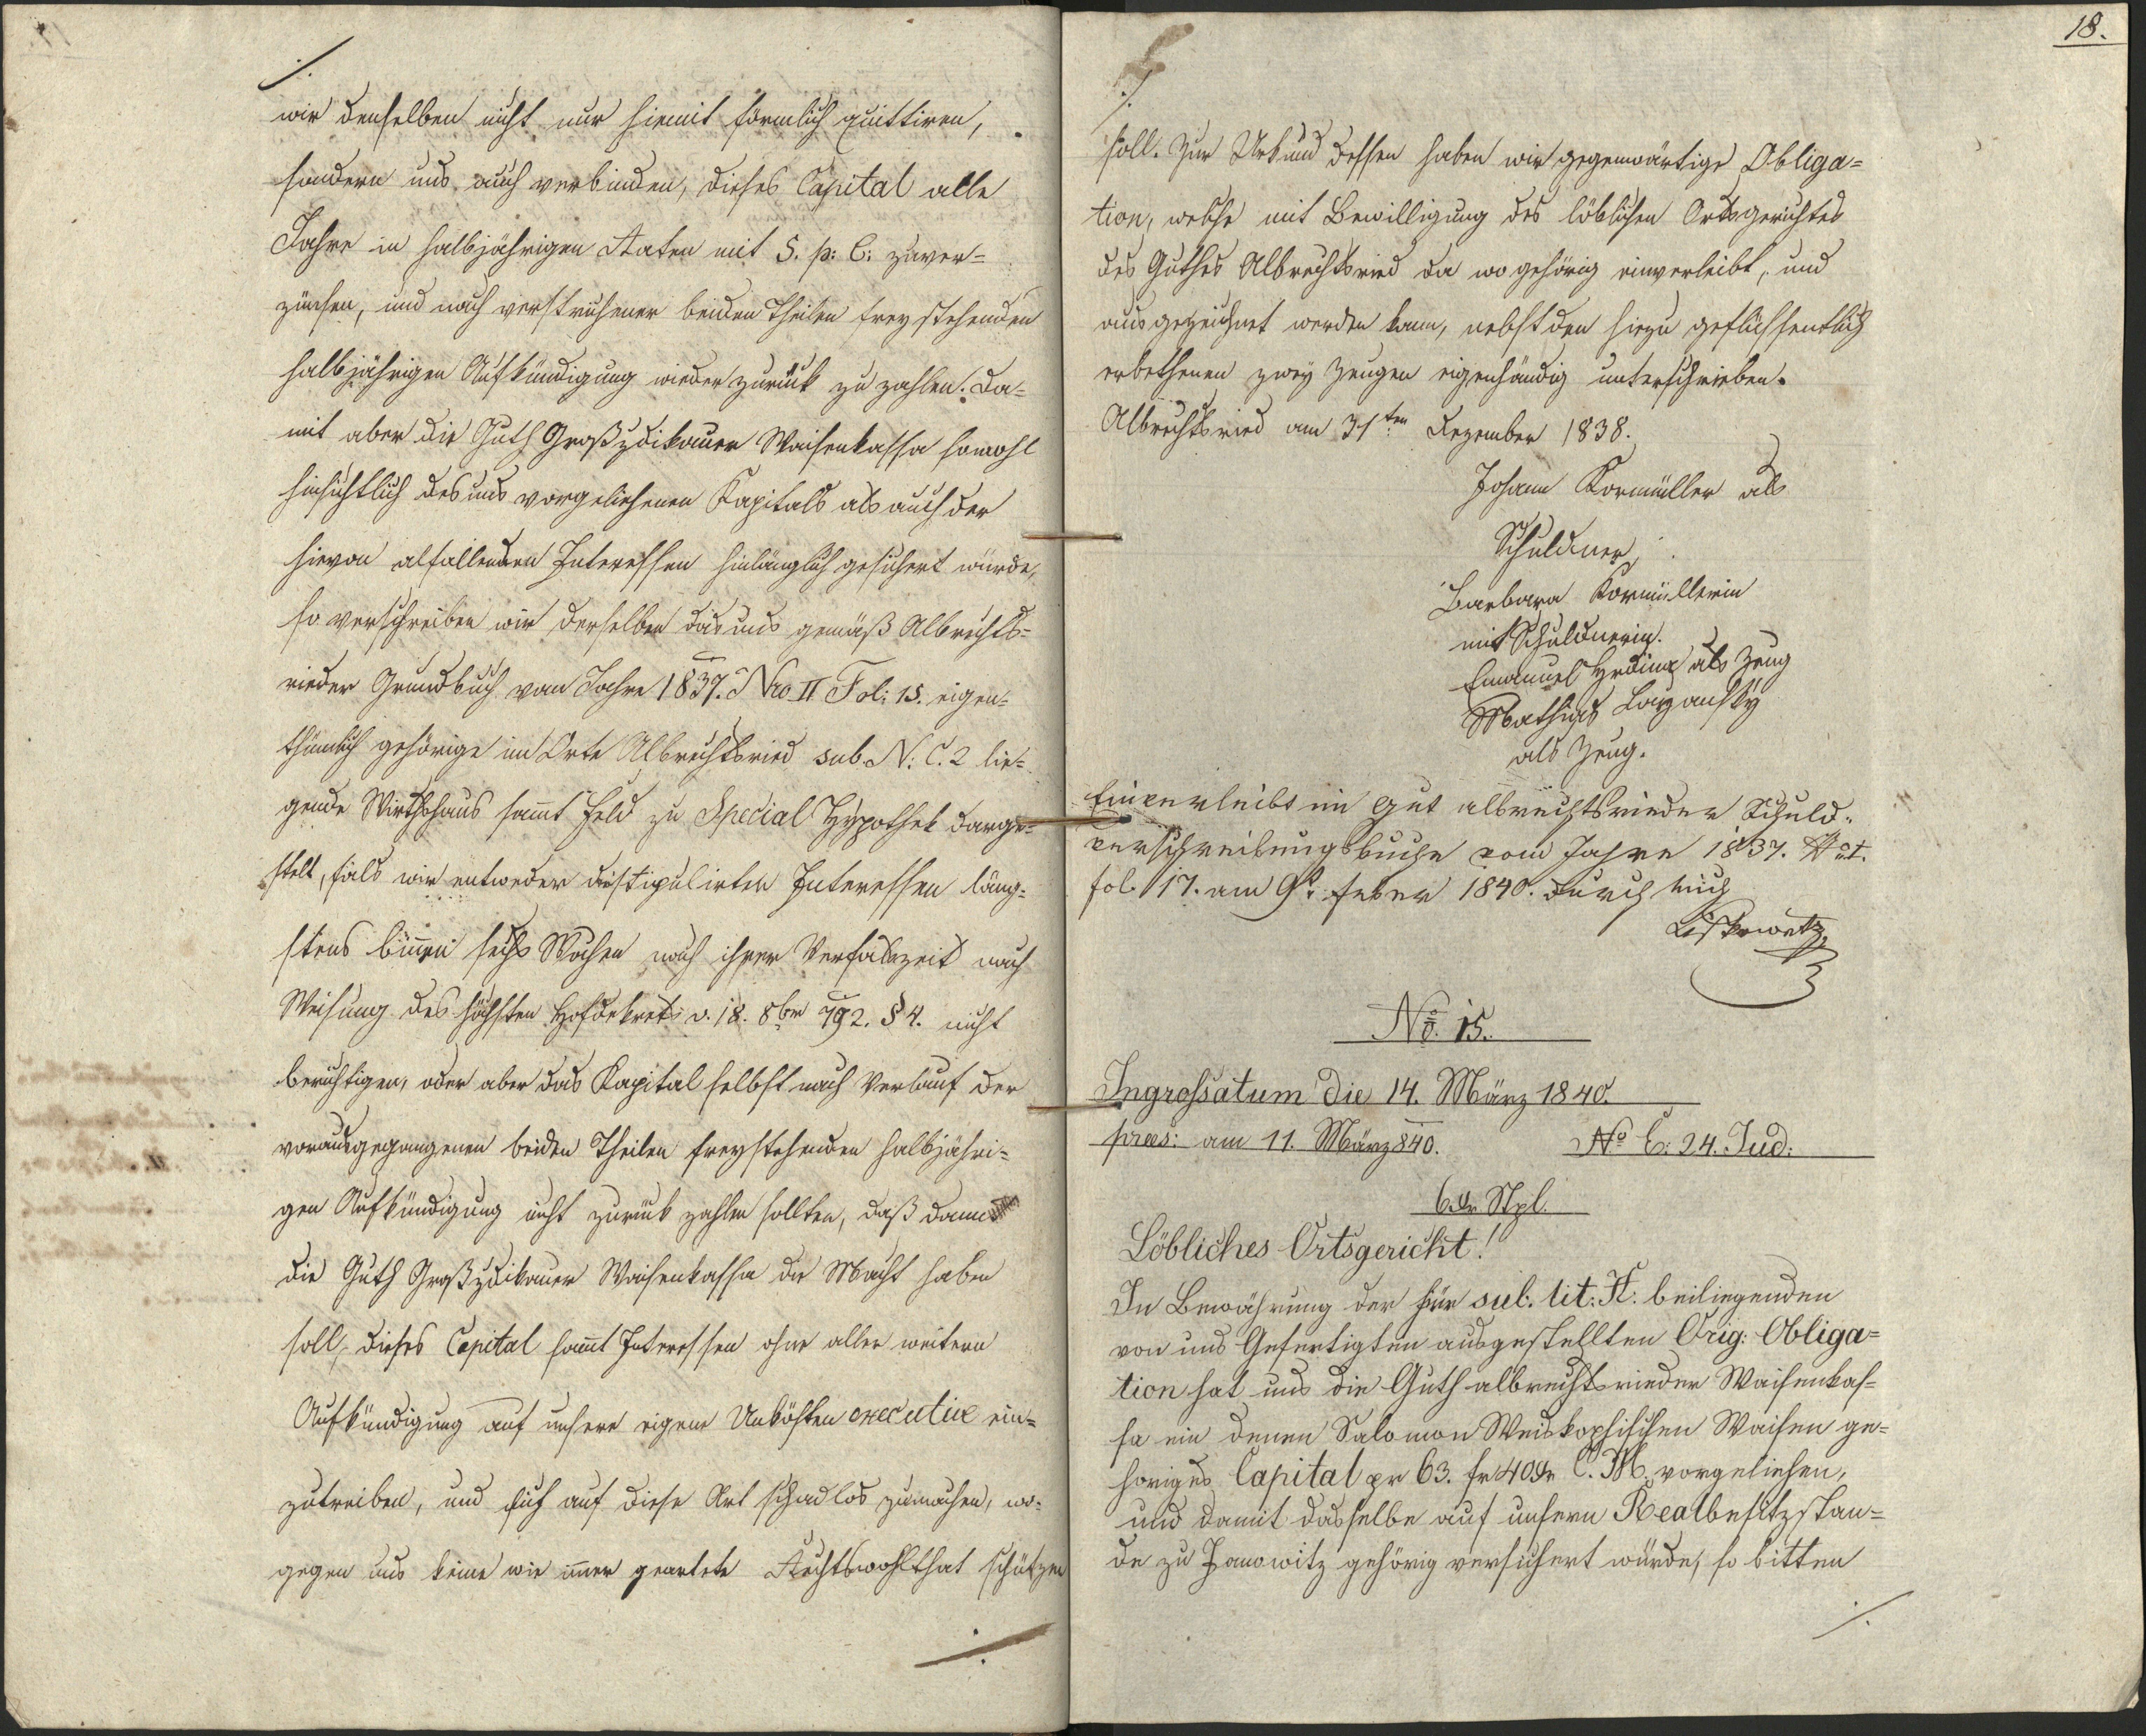 ./.
wir denselben nicht nur hiemit förmlich quittiren,
sondern uns auch verbinden, dieses Capital alle
Jahre in halbjährigen Raten mit 5. p: C: zu ver=
zünsen, und nach verstrichener beiden Theilen freystehenden
halbjährigen Aufkündigung wieder zurück zu zahlen. Da=
mit aber die Guth Großzdikauer Waisenkassa sowohl
hinsichtlich des uns vorgeliehenen Kapitals als auch der
hievon abfallenden Interessen hinlänglich gesichert würde,
so verschreiben wir derselben das uns gemäß Albrechts=
rieder Grundbuch vom Jahre 1837. Nro II Fol: 15. eigen=
thümlich gehörige im Orte Albrechtsried sub N: C. 2 lie=
gende Wirthshaus sam̄t Feld zu Special Hypothek darge=
stelt, fals wir entweder die stipulirten Interessen läng=
stens bin̄en sechs Wochen nach ihrer Verfallszeit nach
Weisung des höchsten Hofdekrets v. 18. 8ber 792. § 4. nicht
berichtigen, oder aber das Kapital selbst nach Verlauf der
vorausgegangenen beiden Theilen freystehenden halbjähri=
gen Aufkündigung nicht zurück zahlen sollten, daß dann
die Guth Großzdikauer Waisenkassa die Macht haben
soll, dieses Capital sam̄t Interessen ohne aller weitern
Aufkündigung auf unsere eigene Unkösten executive ein=
zutreiben, und sich auf diese Art schadlos zumachen, wo=
gegen uns keine wie im̄er geartete Rechtswohlthat schützen
./.
18.
./.
soll. Zur Urkund dessen haben wir gegenwärtige Obliga=
tion, welche mit Bewilligung des löblichen Ortsgerichtes
des Guthes Albrechtsried da wo gehörig einverleibt, und
ausgezeichnet werden kann, nebst den hiezu geflissentlich
erbethenen zwey Zeugen eigenhändig unterschrieben.
Albrechtsried am 31ten Dezember 1838.
Johann Kormüller als
Schuldner,
Barbara Kormüllerin
mit Schuldnerin.
Emanuel Hrdina als Zeug
Mathias Lazansky
als Zeug.
Einverleibt im Gut albrechtsrieder Schuld=
verschreibungsbuche vom Jahre 1837.
fol. 17. am 9t. Feber 1840. durch mich
No. 15.
Ingrossatum die 14. März 1840.
praes: am 11. März 840. No E: 24. Jud:
6 xr Stpl.
Löbliches Ortsgericht!
In Bewährung der hier sub. lit: A. beiliegenden
von uns Gefertigten ausgestellten Orig: Obliga=
tion hat uns die Guth albrechtsrieder Waisenkas=
sa ein denen Salomon Weiskopfischen Waisen ge=
höriges Capital pr 63. fr 40 xr C. M. vorgeliehen,
und damit dasselbe auf unsern Realbesitzstan=
de zu Janowitz gehörig versichert würde, so bitten
./.